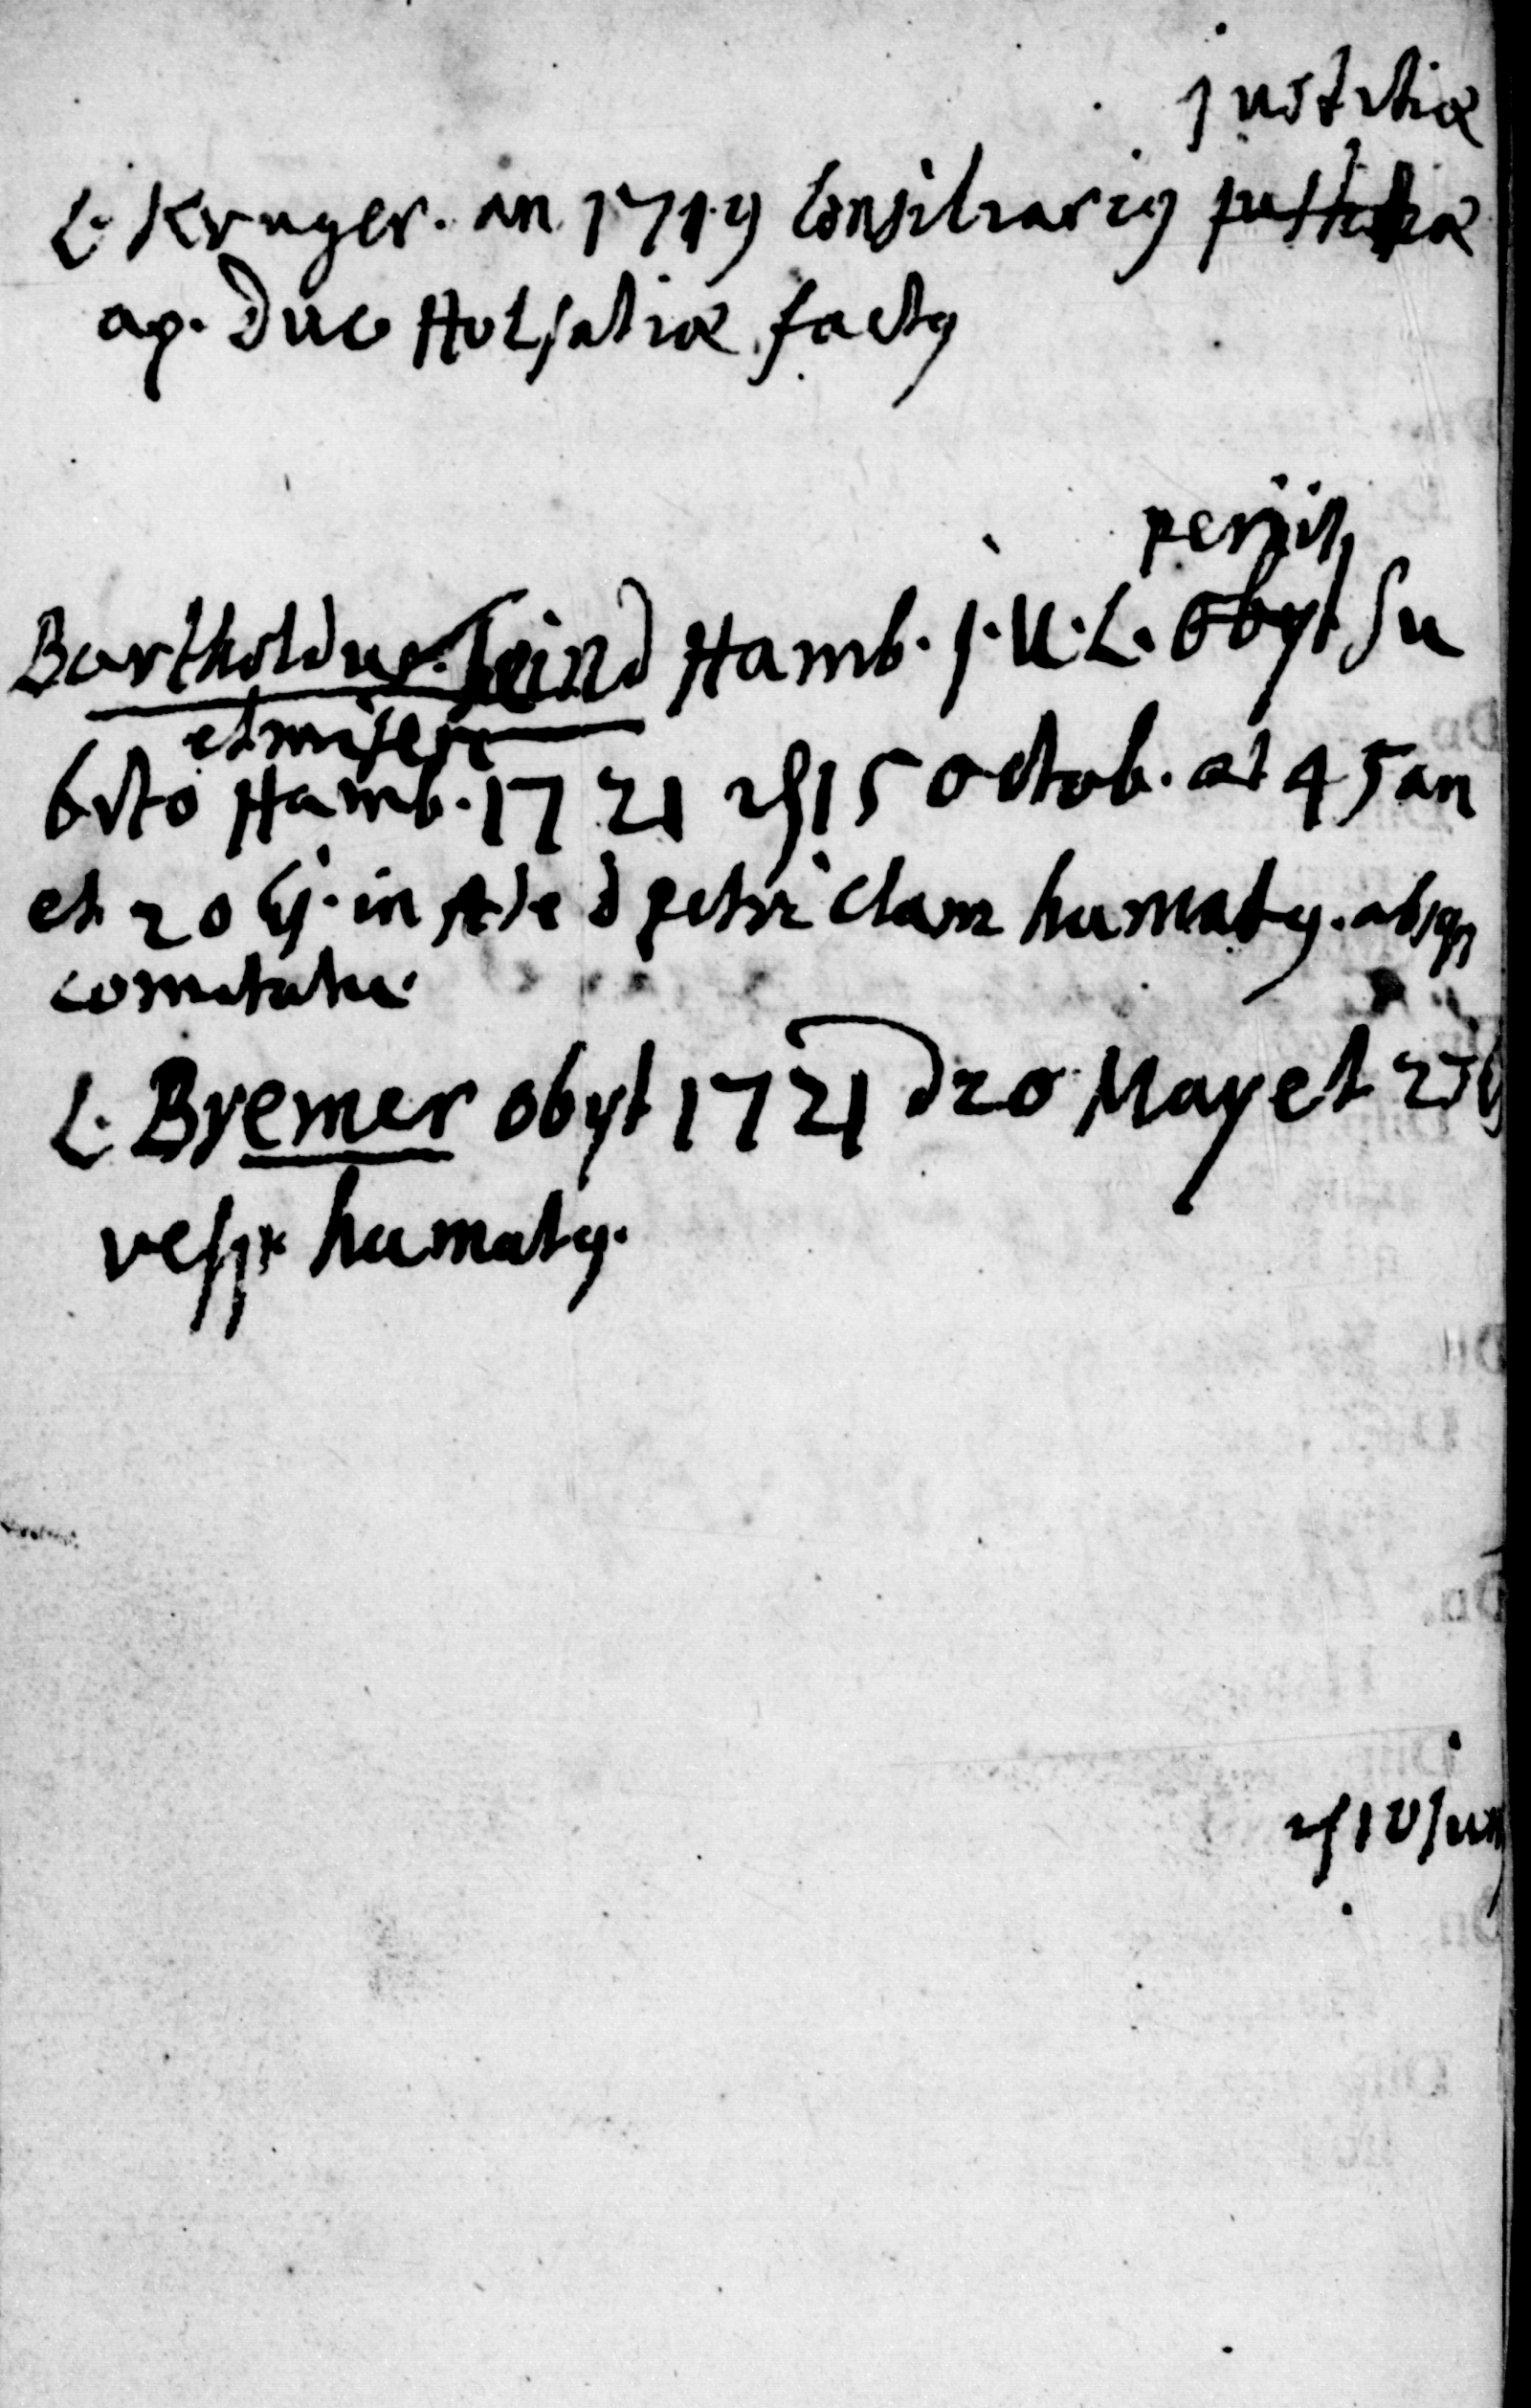 justitiæ
L. Kruger. an 1719 Consiliariꝰ justitiæ
ap. Duc Holsatiæ factꝰ
periit
Bartholdus Feind Hamb. J. U. L. obyt Su
et misere
bito Hamb. 1721 ♃ 15 octob. æt 45 an
et 20 ej. in Æde d petri clam humatꝰ. absqꝫ
comitatu
L. Bremer obyt 1721 d 20 May et 23
vesp. humatꝰ.
♃ 10 Jun